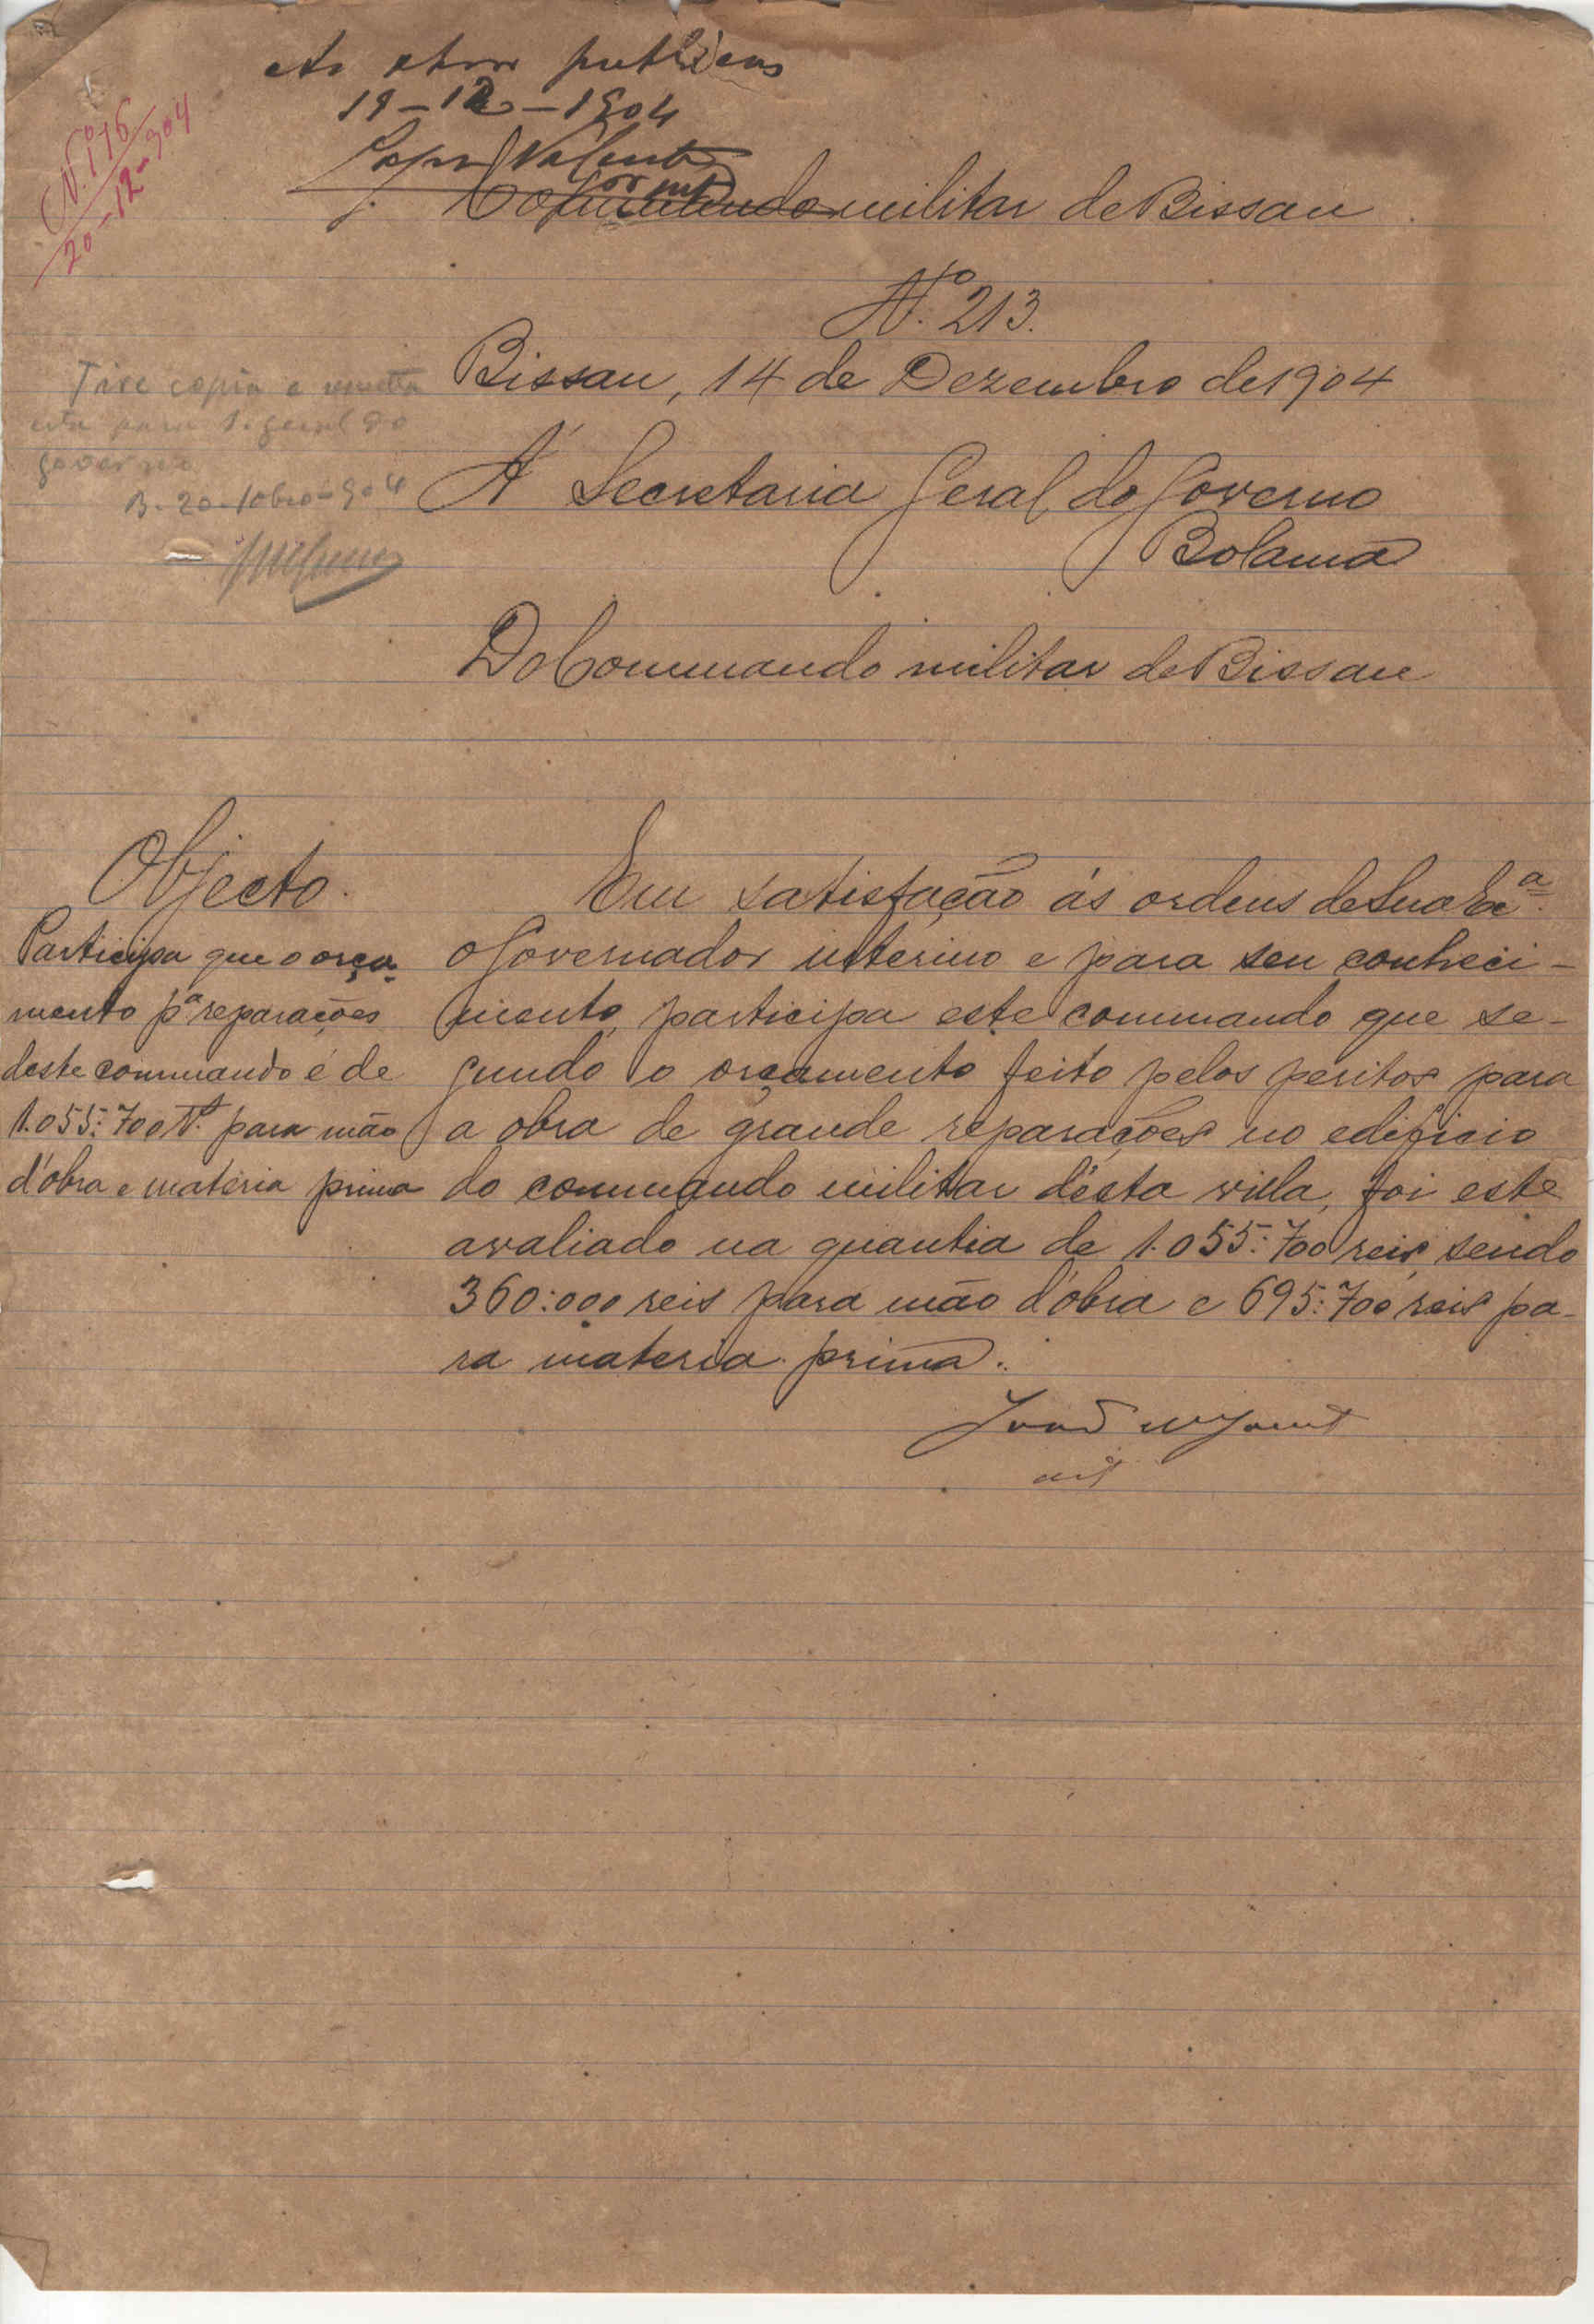 Ás obras publicas
19-12-1904
Valente
Nº 176
20-12-904
Commando militar de Bissau
Nº 213.
Bissau, 14 de Dezembro de 1904
Tire copia e remetta
esta para S. geral do
governo
B. 20-10bro-904
Á Secretaria Geral do Governo
Bolama
Do Commando militar de Bissau
Objecto.
Participa que o orça-
mento pª reparações
deste commando é de
1.055:700 rs. para mão
d'obra e materia prima
Em satisfação ás ordens de Sua Exª.
o Governador interino e para seu conheci-
mento, participa este commando que se-
gundo o orçamento feito pelos peritos para
a obra de grande reparações no edificio
do commando militar d'esta villa, foi este
avaliado na quantia de 1.055:700 reis, sendo
360:000 reis para mão d'obra e 695:700 reis pa-
ra materia prima.